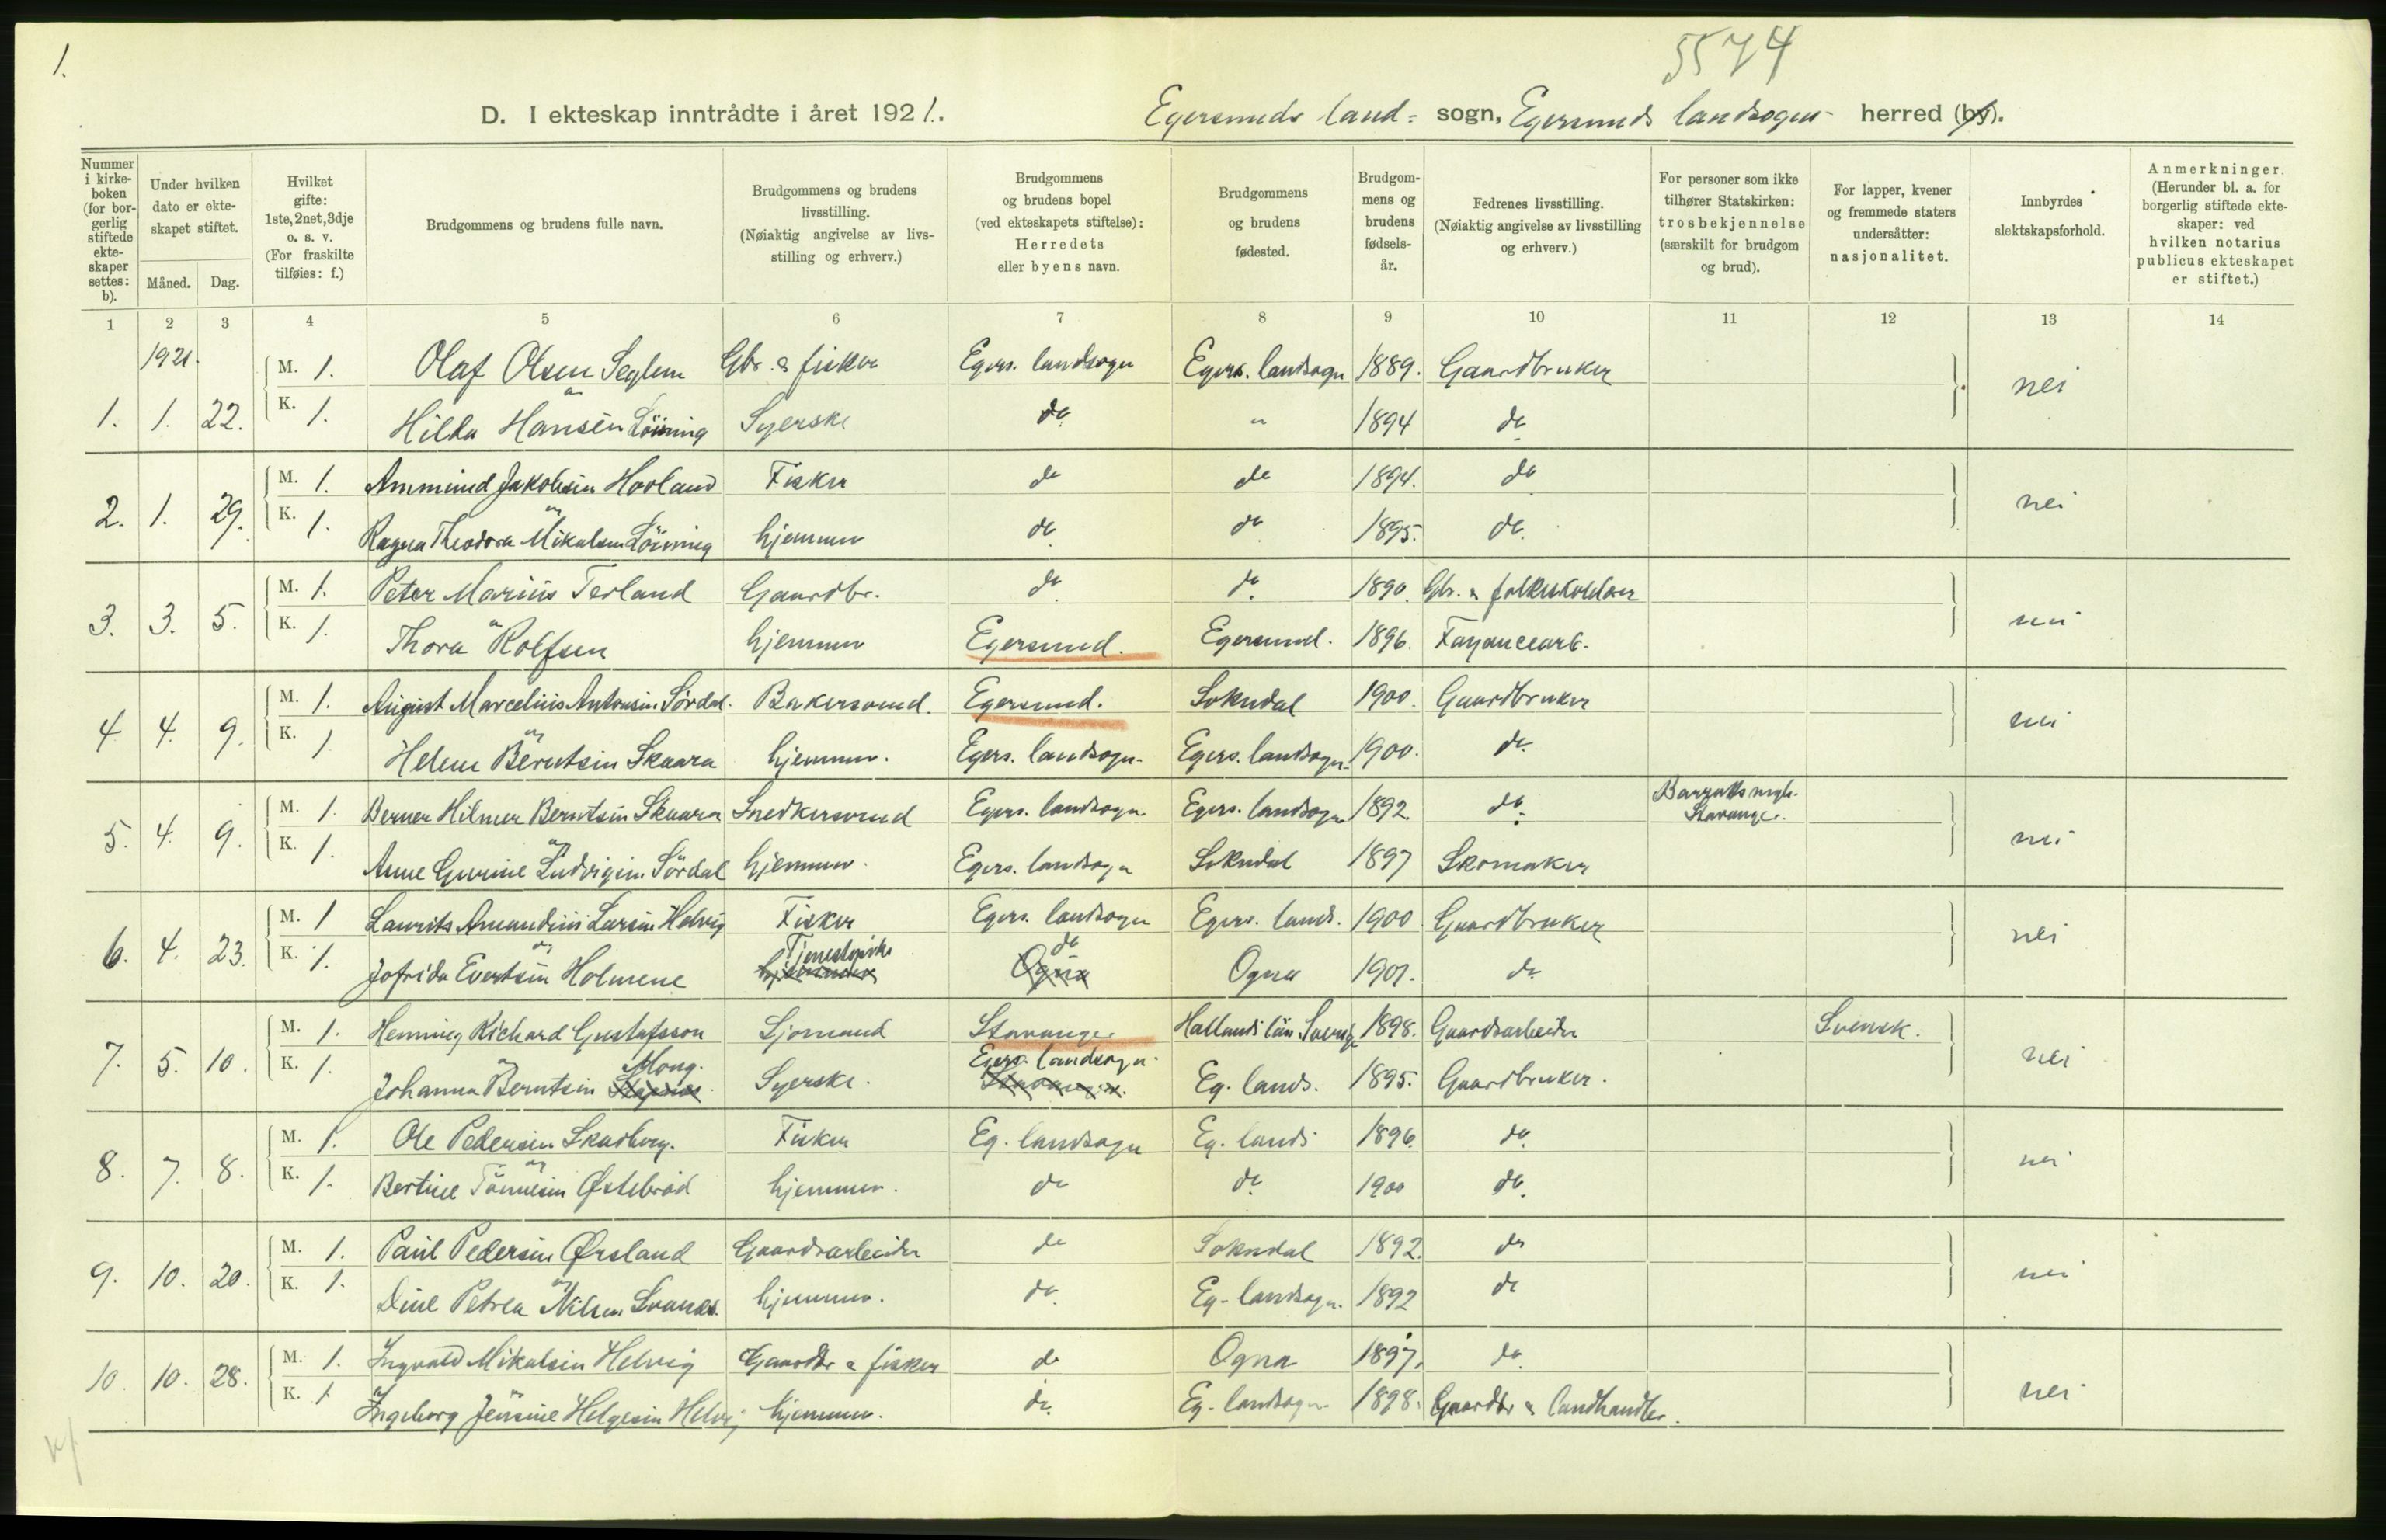 1.
5574
D. I ekteskap inntrådte i året 1921. Egersunds land= sogn, Egersunds landsogn herred (by).
Nummer i kirkeboken (for borgerlig stiftede ekteskaper settes: b).
Under hvilken dato er ekteskapet stiftet.
Måned. Dag.
Hvilket gifte: 1ste, 2net, 3dje o. s. v. (For fraskilte tilføies: f.)
Brudgommens og brudens fulle navn.
Brudgommens og brudens livsstilling. (Nøiaktig angivelse av livsstilling og erhverv.)
Brudgommens og brudens bopel (ved ekteskapets stiftelse): Herredets eller byens navn.
Brudgommens og brudens fødested.
Brudgommens og brudens fødselsår.
Fedrenes livsstilling. (Nøiaktig angivelse av livsstilling og erhverv.)
For personer som ikke tilhører Statskirken: trosbekjennelse (særskilt for brudgom og brud).
For lapper, kvener og fremmede staters undersåtter: nasjonalitet.
Innbyrdes slektskapsforhold.
Anmerkninger. (Herunder bl. a. for borgerlig stiftede ekteskaper: ved hvilken notarius publicus ekteskapet er stiftet.)
1 2 3 4 5 6 7 8 9 10 11 12 13 14
1921.
M. 1. Olaf Olsen Seglem Gbr. & fisker Egers. landsogn Egers. landsogn 1889. Gaardbruker nei
1. 1. 22. K. 1. Hilda Hansen Löining Syerske do. " 1894 do
M. 1. Ammund Jakobsen Hovland Fisker do do 1894. do
2. 1. 29. K. 1. Ragna Theodora Mikalsen Löining hjemmev do. do 1895. do. nei
M. 1. Peter Marius Terland Gaardbr. do do. 1890. Gbr. & folkeskolelærer
3. 3. 5. K. 1. Thora Rolfsen hjemmev Egersund. Egersund. 1896. Fayancearb. nei
M. 1. August Marcelius Antonsen Sördal. Bakersvend. Egersund. Sokndal 1900. Gaardbruker
4 4. 9. K. 1 Helene Berntsen Skaara hjemmev. Egers. landsogn. Egers. landsogn. 1900. do. nei
M. 1. Berner Hilmer Berntsen Skaara Snedkersvend Egers. landsogn. Egers. landsogn 1892. do. Stavanger.
5. 4. 9. K. 1. Anne Gurine Ludvigsen Sördal hjemmev. Egers. landsogn Sokndal 1897 Skomaker nei
M. 1 Laurits Amandius Larsen Helvig Fisker Egers. landsogn Egers. lands. 1900 Gaardbruker
6. 4. 23. K. 1. Jofrida Evertsen Holmene Tjenestepike hjemmev do Ogna Ogna 1901. do nei
M. 1. Henning Richard Gustafsson Sjomand Stavanger Hallands län. Sverig 1898. Gaardsarbeider Svensk.
7. 5. 10. K. 1. Johanna Berntsen Mong. Syerske. Egers. landsogn. Stavanger. Eg. lands. 1895. Gaardbruker. nei
M. 1. Ole Pedersen Skadberg. Fisker Eg. landsogn Eg. lands 1896. do.
8. 7. 8. K. 1. Bertine Tönnesen Østebröd hjemmev. do do. 1900 do. nei
M. 1. Paul Pedersen Ørsland Gaardsarbeider do Sokndal 1892. do
9. 10. 20. K. 1. Dine Petrea Nilsen Svanes. hjemmev. do. Eg. landsogn. 1892 do nei
M. 1. Ingvald Mikalsen Helvig Gaardbr & fisker do Ogna 1897. do.
10. 10. 28. K. 1 Ingeborg Jensine Helgesen Helvig hjemmev. do. Eg. landsogn. 1898. Gaardbr & landhandler. nei